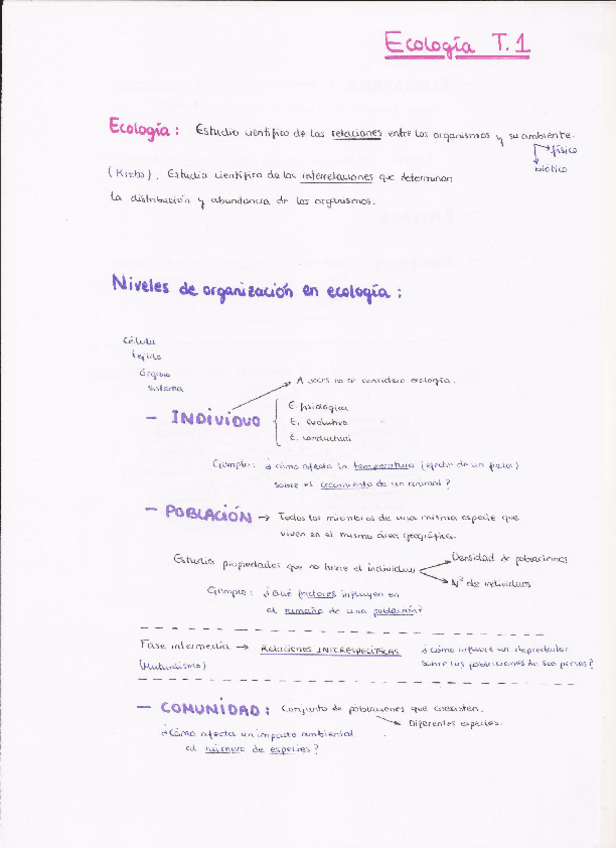 Ecología T.1
Ecología: Estudio científico de las relaciones entre los organismos y su ambiente.
físico
biótico
(Krebs). Estudio científico de las interrelaciones que determinan
la distribución y abundancia de los organismos.
Niveles de organización en ecología:
Célula
tejido
órgano
sistema
A veces no se considera ecología.
- INDIVIDUO
E. fisiológica
E. evolutiva
E. conductual
Ejemplo: ¿cómo afecta la temperatura (efecto de un físico)
sobre el crecimiento de un animal?
- POBLACIÓN → Todos los miembros de una misma especie que
viven en el mismo área geográfica.
Estudia propiedades que no tiene el individuo
Densidad de poblaciones
Nº de individuos
Ejemplo: ¿Qué factores influyen en
el tamaño de una población?
Fase intermedia → RELACIONES INTERESPECÍFICAS ¿Cómo influye un depredador
(Mutualismo) sobre las poblaciones de sus presas?
- COMUNIDAD: Conjunto de poblaciones que coexisten.
Diferentes especies.
¿Cómo afecta un impacto ambiental
al número de especies?